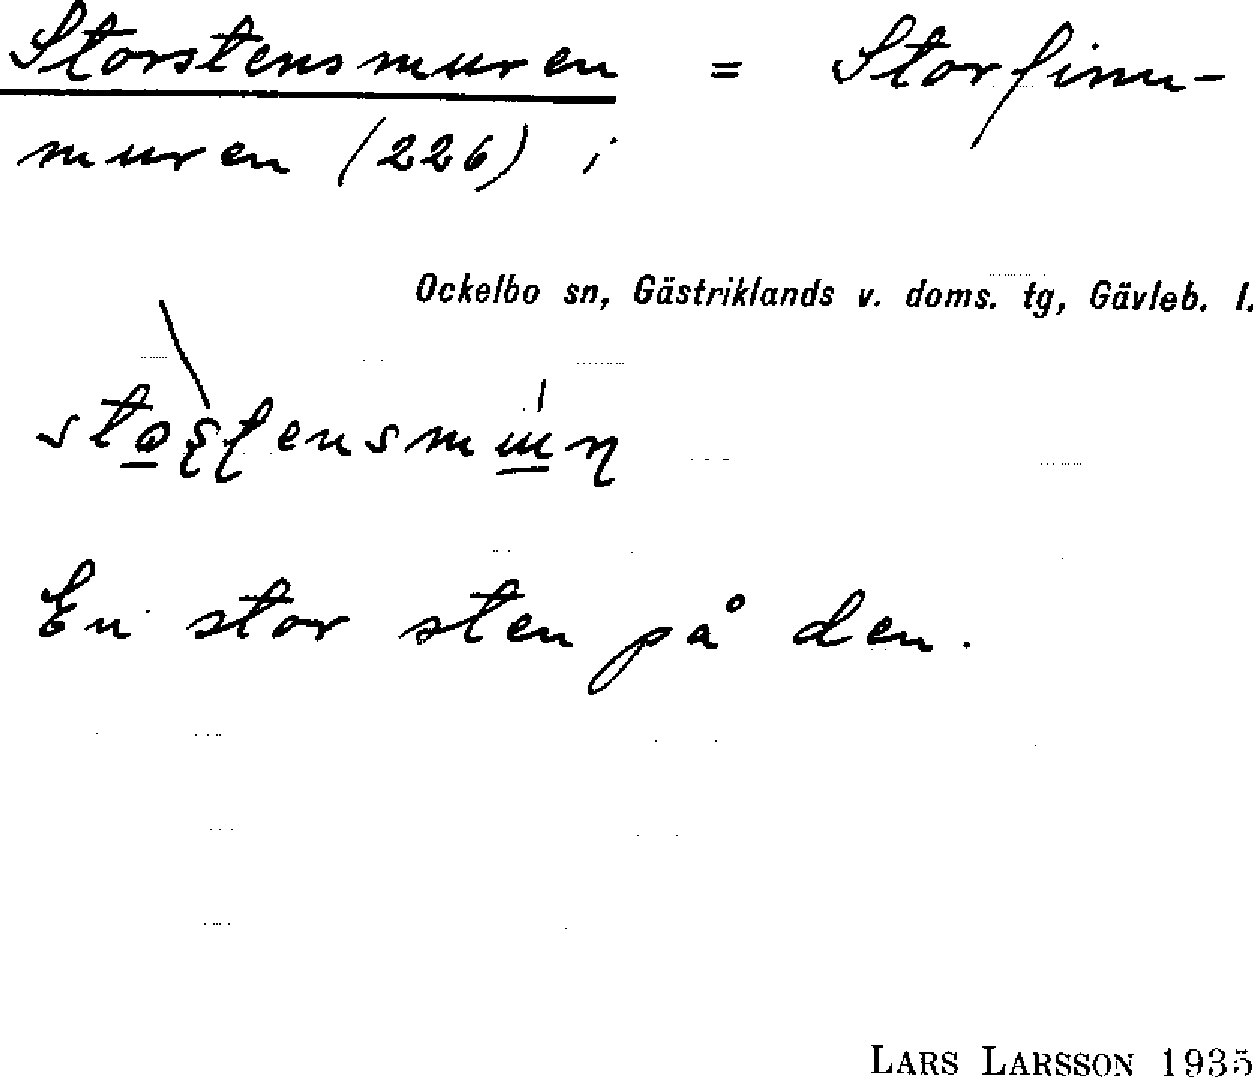 Storstensmuren = Storfinn-
muren (226) i
Ockelbo sn, Gästriklands v. doms. tg, Gävleb. l.
En stor sten på den.
LARS LARSSON 1935